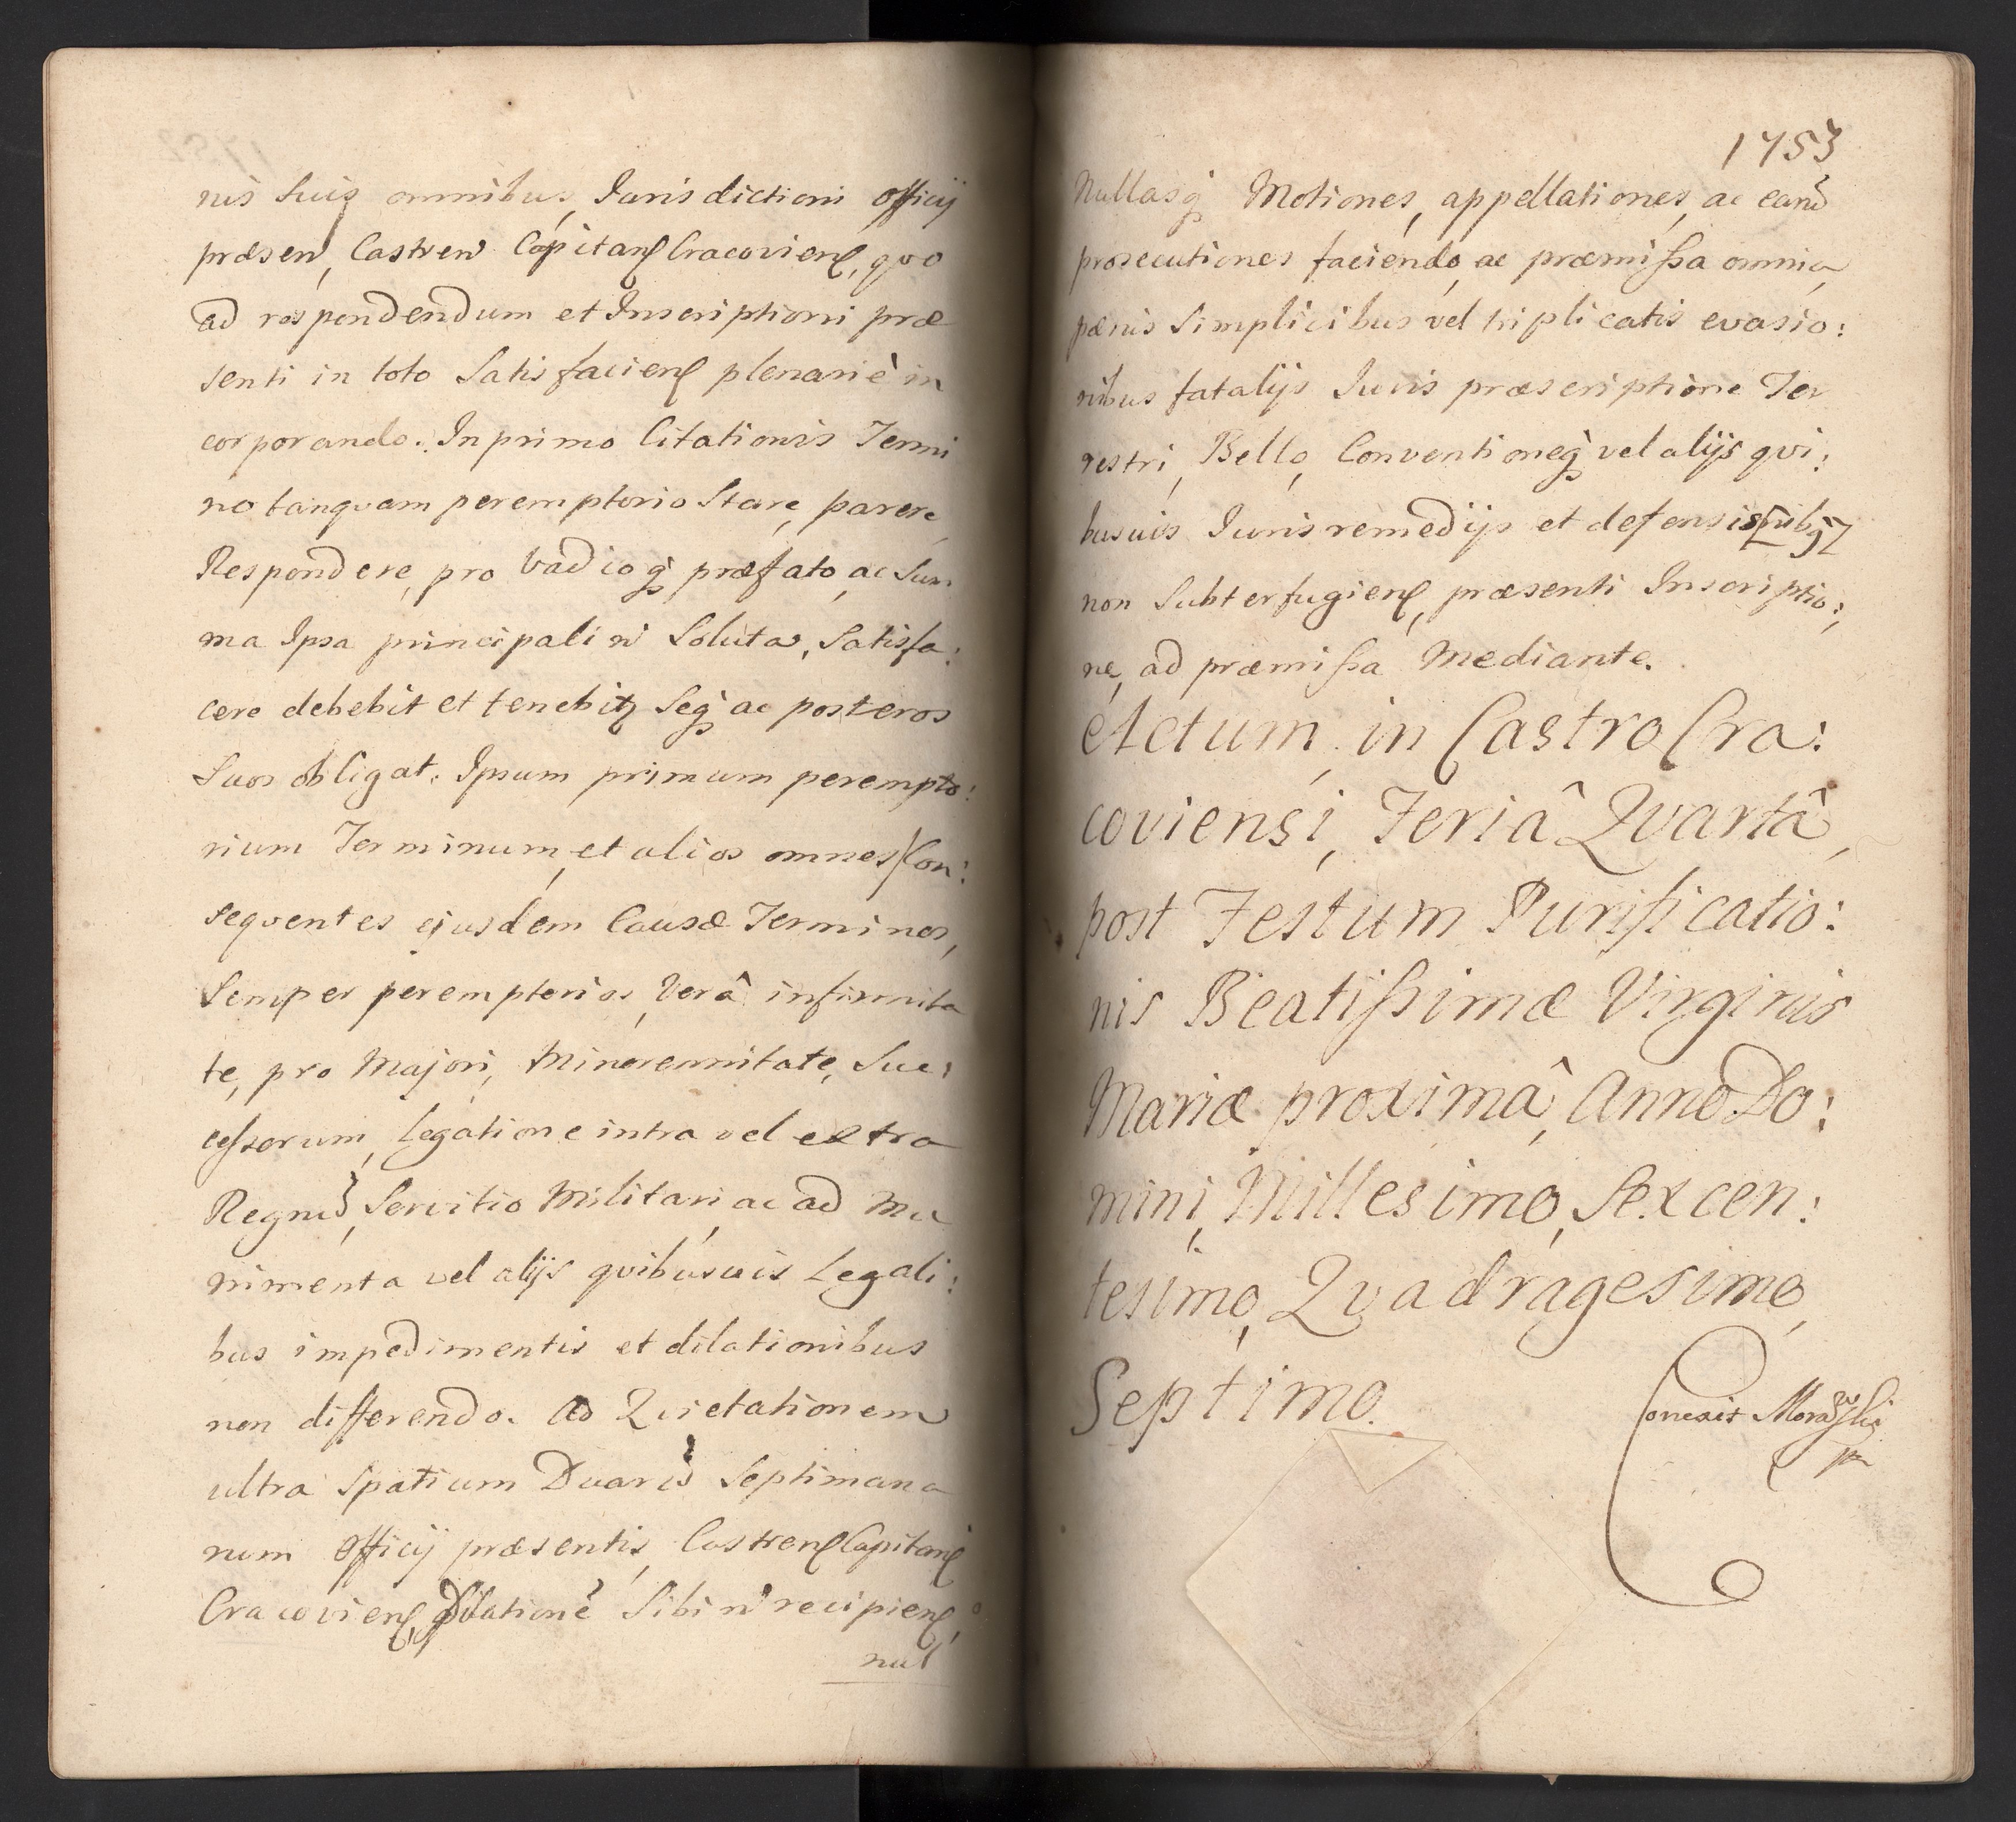 nis suis omnibus, Iurisdictioni officij
præsen, Castren Capitanꝭ Cracovienꝭ, qvo
ad respondendum et Inscriptioni præ
senti in toto Satisfacienꝭ plenariè in
corporando. In primo Citationis Termi
no tanqvam peremptorio Stare, parere,
Respondere, pro Vadioq̃ præfato, ac Sum
ma Ipsa principali ñ Soluta, Satisfa:
cere debebit et tenebitꝛ Seq̃ ac posteros
Suos obligat. Ipsum primum perempto:
rium Terminum, et alios omnes Con:
seqventes ejusdem Causæ Terminos,
Semper peremptorios, Verâ infirmita
te, pro Majori, Minorennitate, Suc:
cessorum, Legatione intra vel extra
Regnũ, Servitio Militari, ac ad Mu
nimenta vel alijs qvibusuis Legali:
bus impedimentis et dilationibus
non differendo. Ad Qvietationem
ultra Spatium Duarũ Septimana
rum officij præsentis, Castrenꝭ Capitanꝭ
Cracovienꝭ, Dilationẽ Sibi ñ recipienꝭ,
nul
1753
Nullasq̃ Motiones, appellationes, ac eand
prosecutiones faciendo, ac præmissa omnia,
pænis Simplicibus vel triplicatis evasio:
nibus fatalijs Iuris præscriptione Ter
restri, Bello, Conventioneq̃ vel alijs qvi:
busuis Iuris remedijs et defensis[nibq̃]
non Subterfugienꝭ, præsenti Inscriptio:
ne, ad præmissa Mediante.
Actum in Castro Cra:
coviensi, Feriâ Qvartâ,
post Festum Purificatio:
nis Beatissimæ Virginis
Mariæ proximâ, Anno Do:
mini, Millesimo, Sexcen:
tesimo, Qvadragesimo,
Septimo.
Conexit